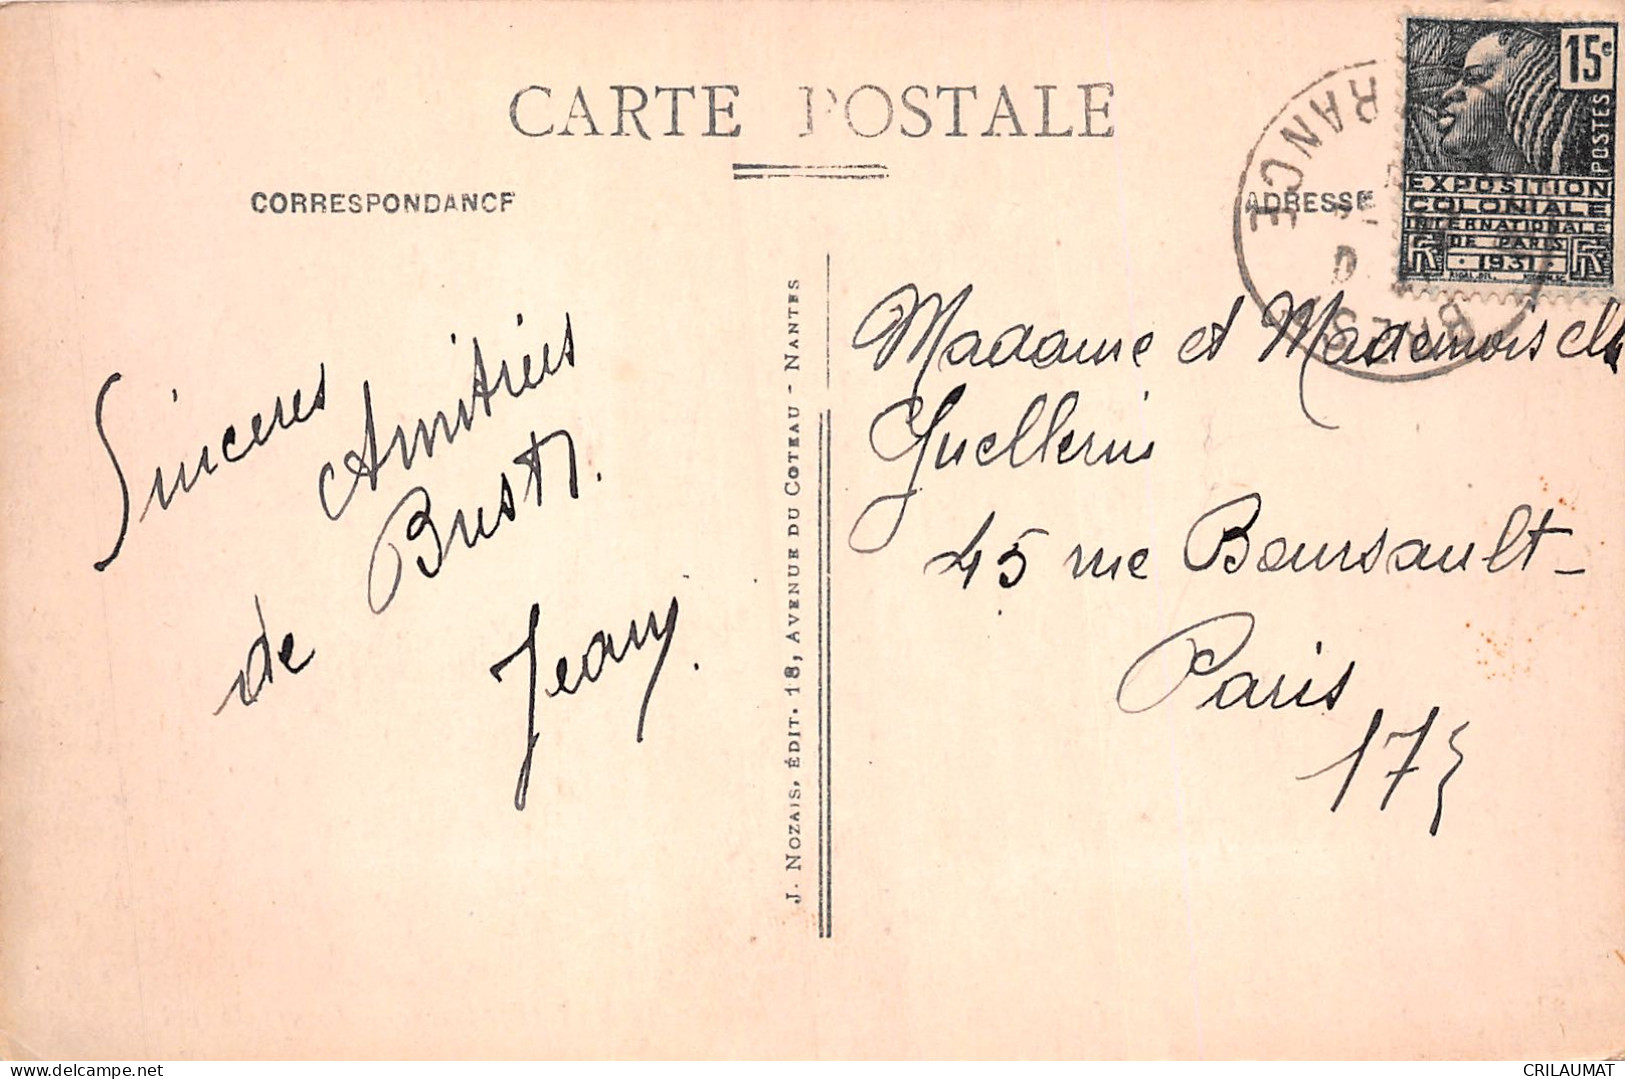 CARTE POSTALE
CORRESPONDANCE
ADRESSE
15c
POSTES
EXPOSITION
COLONIALE
INTERNATIONALE
DE PARIS
1931
RF RF
BREST
RANCE
Sinceres
Amitiées
de Brest.
Jeany.
J. NOZAIS, ÉDIT. 18, AVENUE DU COTEAU - NANTES
Madame et Mademoiselle
Guellerin
45 rue Boursault
Paris
17
CRILAUMAT